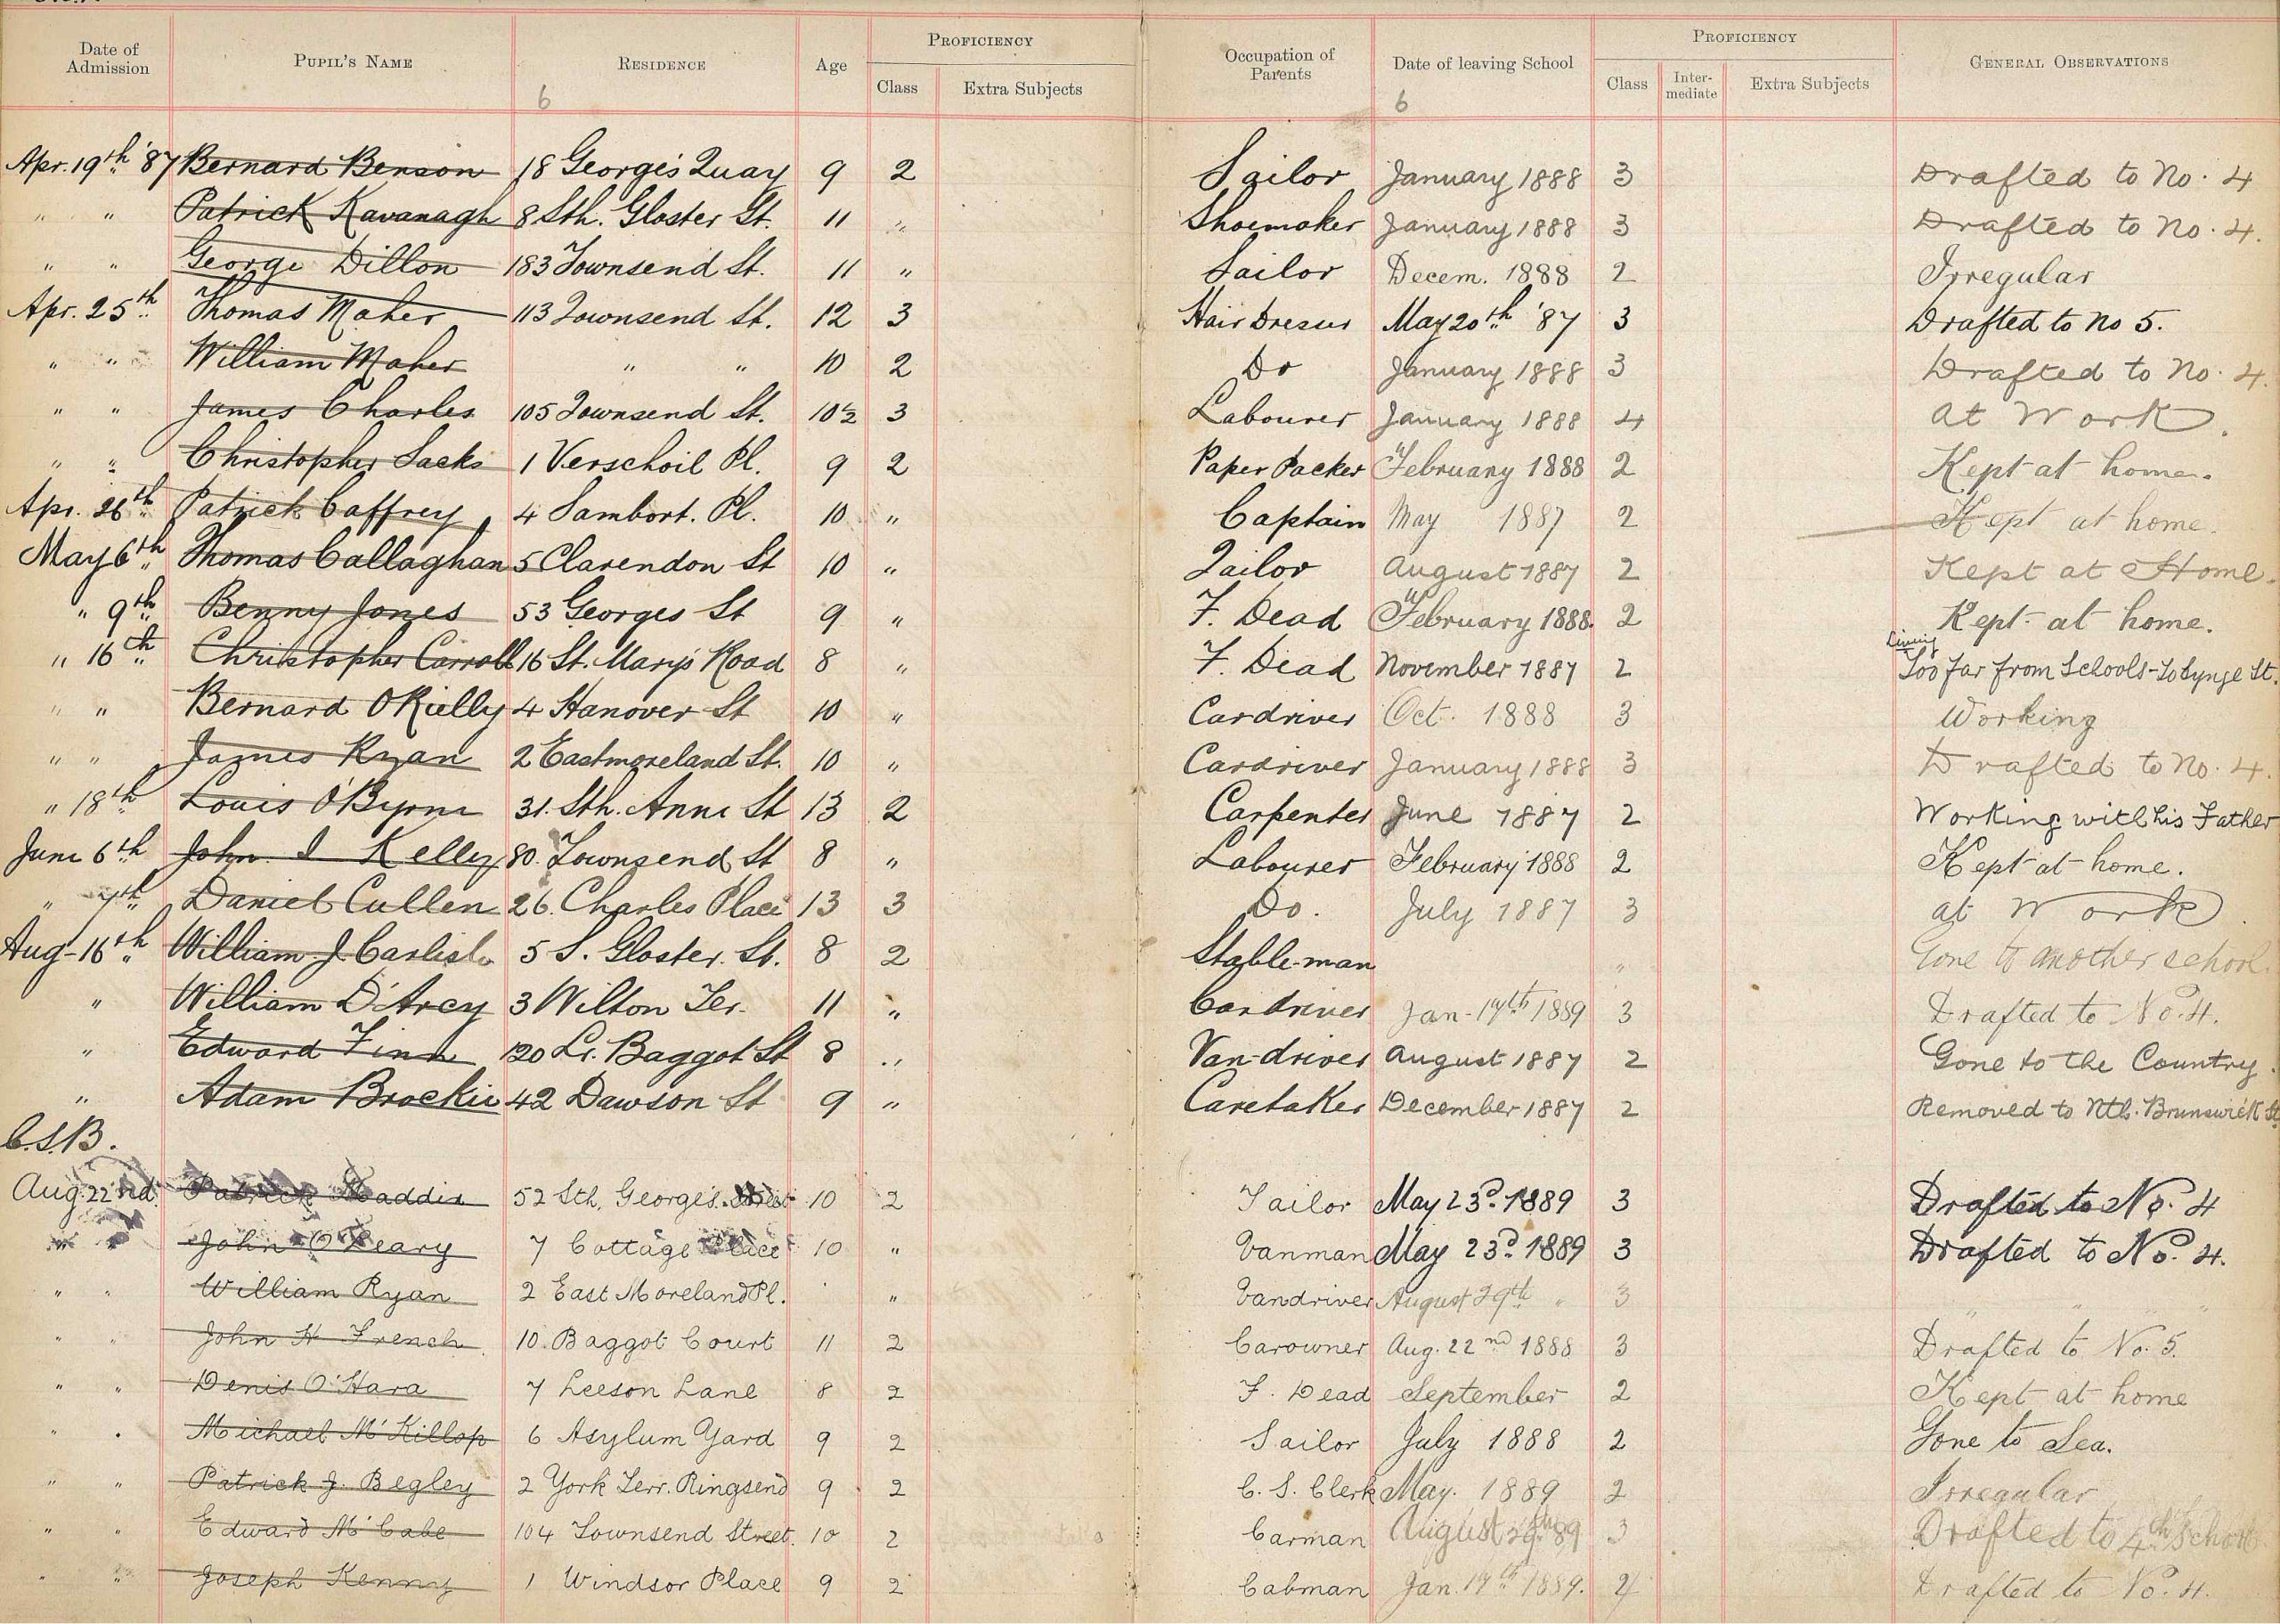 Date of Admission Pupil's Name Residence Age Proficiency Class Extra Subjects Occupation of Parents Date of leaving School Proficiency Class Intermediate Extra Subjects General Observations
6 6
Apr. 19th '87 Bernard Benson 18 George's Quay 9 2 Sailor January 1888 3 Drafted to No. 4
" " Patrick Kavanagh 8 Sth. Gloster St. 11 " Shoemaker January 1888 3 Drafted to No. 4.
" " George Dillon 183 Townsend St. 11 " Sailor Decem. 1888 2 Irregular
Apr. 25th Thomas Maher 113 Townsend St. 12 3 Hair Dresser May 20th '87 3 Drafted to No 5.
" " William Maher " " 10 2 Do January 1888 3 Drafted to No. 4.
" " James Charles 105 Townsend St. 10½ 3 Labourer January 1888 4 at Work.
" " Christopher Sacks 1 Verschoil Pl. 9 2 Paper Packer February 1888 2 Kept at home.
Apr. 26th Patrick Caffrey 4 Sambort. Pl. 10 " Captain May 1887 2 Kept at home.
May 6th Thomas Callaghan 5 Clarendon St 10 " Tailor August 1887 2 Kept at Home.
" 9th Benny Jones 53 Georges St 9 " F. Dead February 1888. 2 Kept at home.
" 16th Christopher Carroll 16 St. Mary's Road 8 " F. Dead November 1887 2 Living Too far from Schools - To Synge St.
" " Bernard O'Rielly 4 Hanover St 10 " Cardriver Oct. 1888 3 Working
" " James Ryan 2 Eastmoreland St. 10 " Cardriver January 1888 3 Drafted to No. 4.
" 18th Louis O'Byrne 31. Sth. Anne St 13 2 Carpenter June 1887 2 Working with his Father
June 6th John I Kelly 80. Townsend St 8 " Labourer February 1888 2 Kept at home.
" 7th Daniel Cullen 26. Charles Place 13 3 Do. July 1887 3 at Work.
Aug. 16th William J. Carlisle 5 S. Gloster. St. 8 2 Stable-man " Gone to another school.
" William D'Arcy 3 Wilton Ter. 11 " Cardriver Jan. 17th 1889 3 Drafted to No. 4.
" Edward Finn 120 Lr. Baggot St 8 " Van-driver August 1887 2 Gone to the Country.
" Adam Brockie 42 Dawson St 9 " Caretaker December 1887 2 Removed to Nth. Brunswick St.
C.S.B.
Aug. 22nd. Patrick Maddin 52 Sth. George's. Street 10 2 Tailor May 23d. 1889 3 Drafted to No. 4
" " John O'Leary 7 Cottage Place 10 " Vanman May 23d. 1889 3 Drafted to No. 4.
" " William Ryan 2 East Moreland Pl. " Vandriver August 29th " 3 " " " "
" " John H French 10. Baggot Court 11 2 Carowner Aug. 22nd 1888 3 Drafted to No. 5.
" " Denis O'Hara 7 Leeson Lane 8 2 F. Dead September 2 Kept at home
" " Michael McKillop 6 Asylum Yard 9 2 Sailor July 1888 2 Gone to Sea.
" " Patrick J. Begley 2 York Terr. Ringsend 9 2 C. S. Clerk May. 1889 2 Irregular
" " Edward McCabe 104 Townsend Street. 10 2 Carman August '89 3 Drafted to 4th School
" " Joseph Kenny 1 Windsor Place 9 2 Cabman Jan. 17th 1889. 2 Drafted to No. 4.